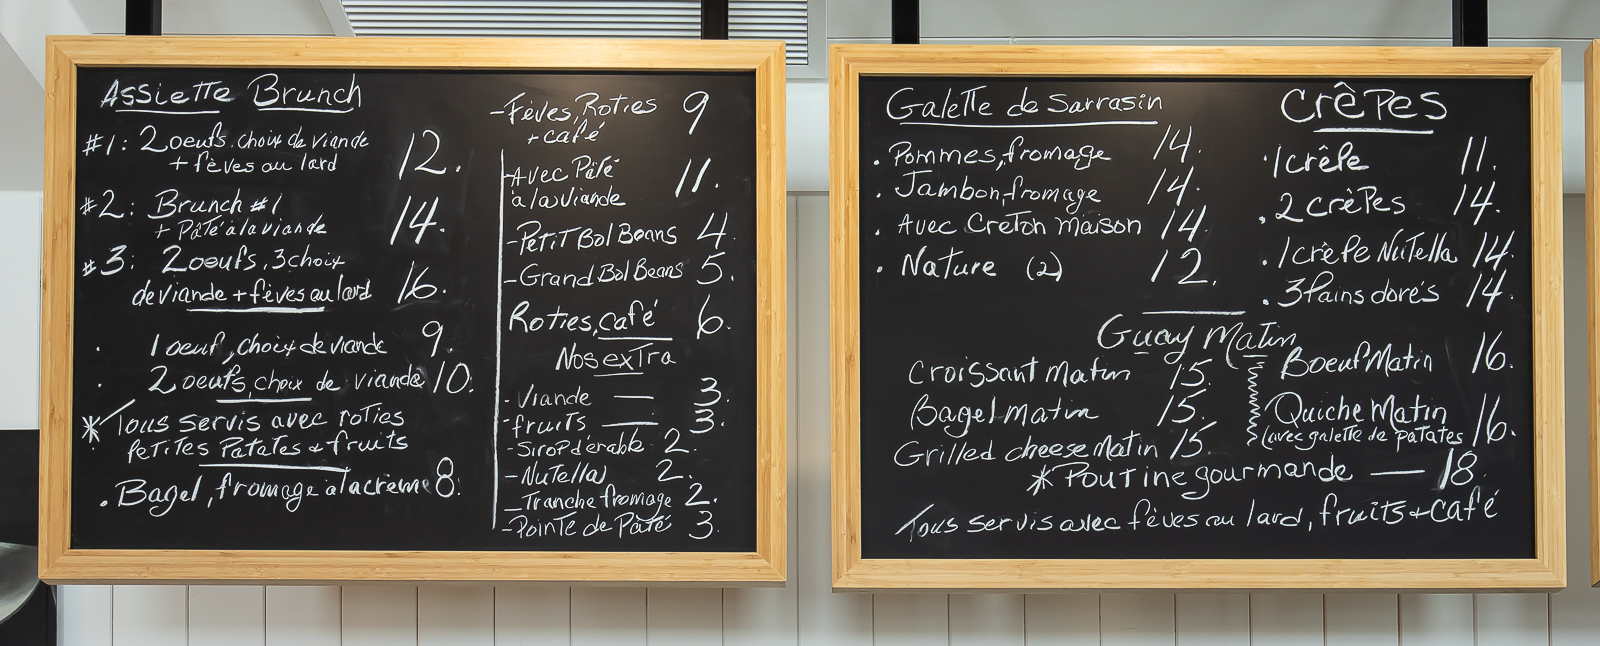 Assiette Brunch
#1: 2 oeufs, choix de viande 12.
+ fèves au lard
#2: Brunch #1 14.
+ Pâté à la viande
#3: 2 oeufs, 3 choix
de viande + fèves au lard 16.
1 oeuf, choix de viande 9.
2 oeufs, choix de viande 10.
* Tous servis avec roties
petites Patates & fruits
. Bagel, fromage à la crème 8.
- Fèves, Roties 9
+ café
- Avec Pâté 11.
à la viande
- Petit Bol Beans 4.
- Grand Bol Beans 5.
Roties, café 6.
Nos extra
- Viande — 3.
- fruits — 3.
- Sirop d'érable 2.
- Nutella 2.
- Tranche fromage 2.
- Pointe de Pâté 3.
Galette de Sarrasin
. Pommes, fromage 14.
. Jambon, fromage 14.
. Avec Creton maison 14.
. Nature (2) 12.
Crêpes
. 1 crêpe 11.
. 2 crèpes 14.
. 1 crèpe Nutella 14.
. 3 Pains dorés 14.
Guay Matin
Croissant matin 15.
Bagel matin 15.
Grilled cheese Matin 15.
Boeuf Matin 16.
Quiche Matin 16.
(avec galette de patates
* Poutine gourmande — 18.
Tous servis avec fèves au lard, fruits + café